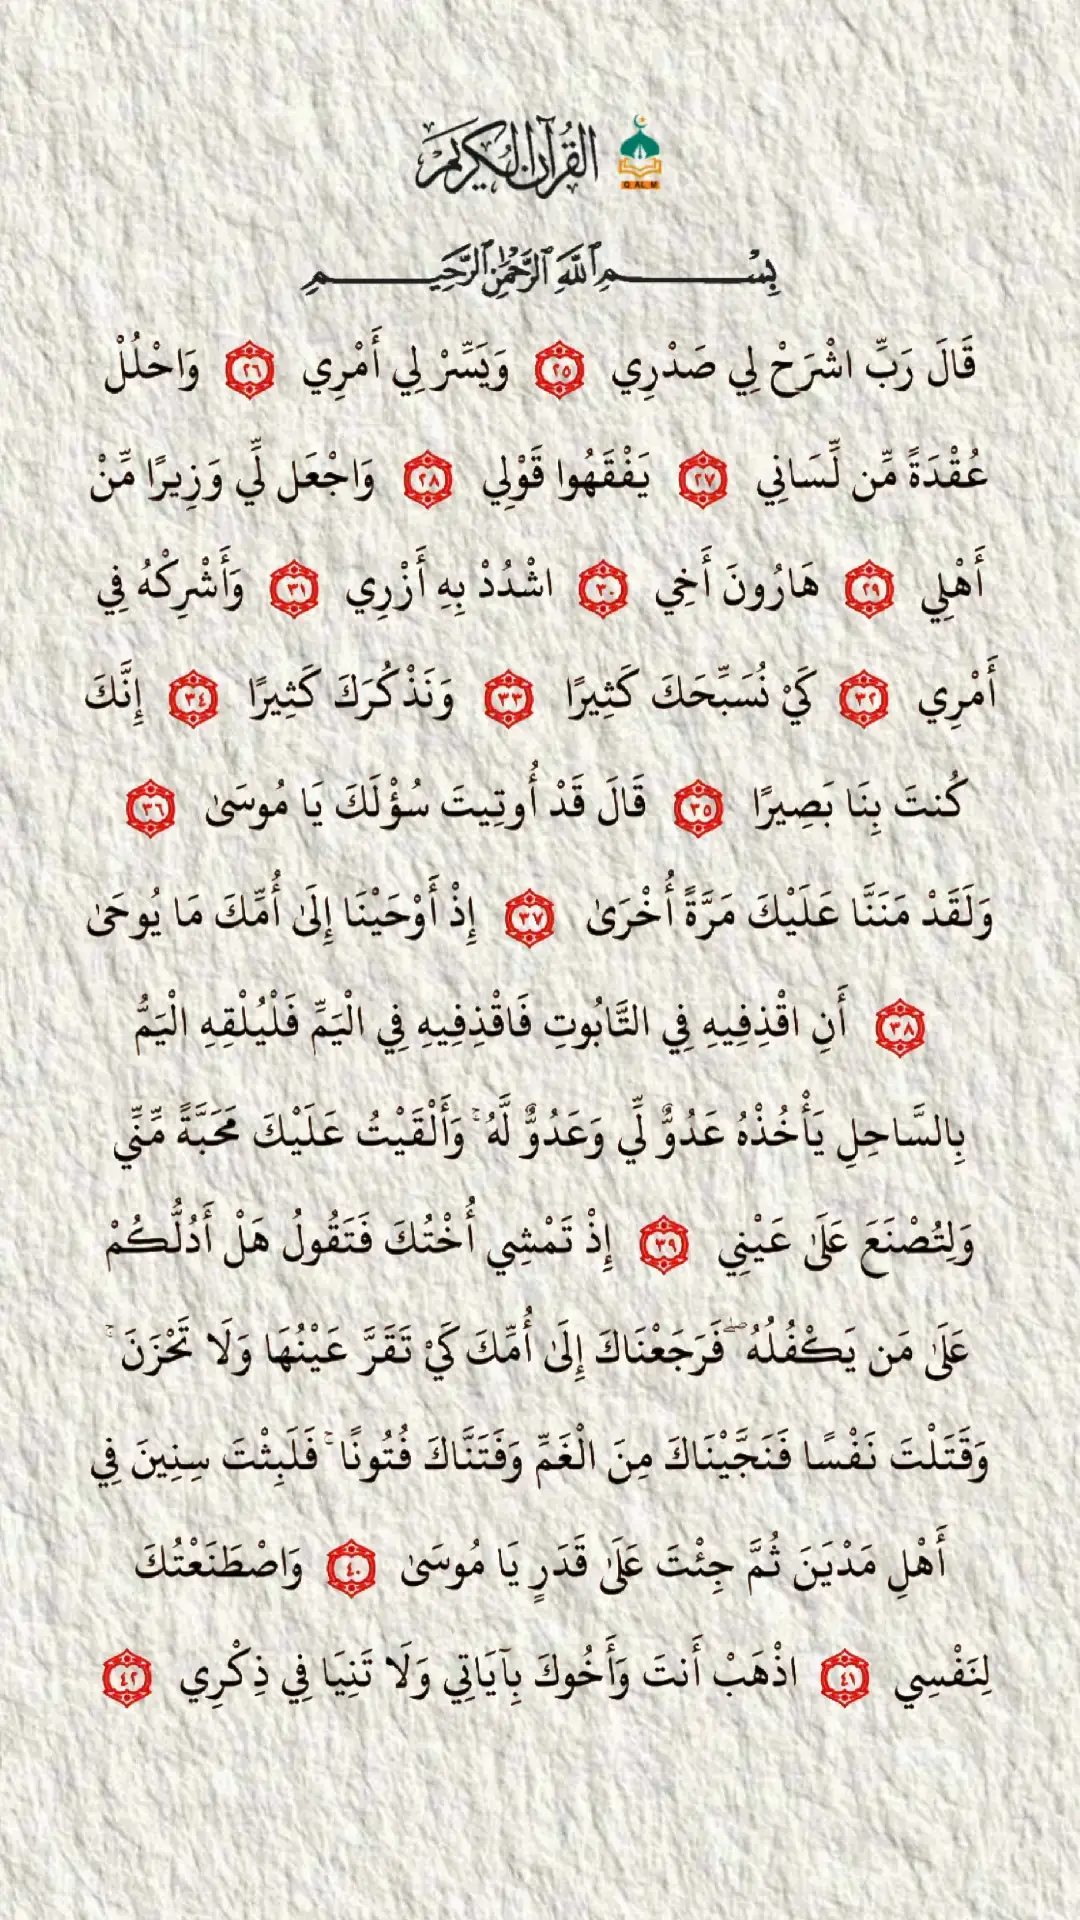 القرآن الكريم
QALM
بِسْمِ ٱللَّهِ ٱلرَّحْمَٰنِ ٱلرَّحِيمِ
قَالَ رَبِّ اشْرَحْ لِي صَدْرِي ٢٥ وَيَسِّرْ لِي أَمْرِي ٢٦ وَاحْلُلْ
عُقْدَةً مِّن لِّسَانِي ٢٧ يَفْقَهُوا قَوْلِي ٢٨ وَاجْعَل لِّي وَزِيرًا مِّنْ
أَهْلِي ٢٩ هَارُونَ أَخِي ٣٠ اشْدُدْ بِهِ أَزْرِي ٣١ وَأَشْرِكْهُ فِي
أَمْرِي ٣٢ كَيْ نُسَبِّحَكَ كَثِيرًا ٣٣ وَنَذْكُرَكَ كَثِيرًا ٣٤ إِنَّكَ
كُنتَ بِنَا بَصِيرًا ٣٥ قَالَ قَدْ أُوتِيتَ سُؤْلَكَ يَا مُوسَىٰ ٣٦
وَلَقَدْ مَنَنَّا عَلَيْكَ مَرَّةً أُخْرَىٰ ٣٧ إِذْ أَوْحَيْنَا إِلَىٰ أُمِّكَ مَا يُوحَىٰ
٣٨ أَنِ اقْذِفِيهِ فِي التَّابُوتِ فَاقْذِفِيهِ فِي الْيَمِّ فَلْيُلْقِهِ الْيَمُّ
بِالسَّاحِلِ يَأْخُذْهُ عَدُوٌّ لِّي وَعَدُوٌّ لَّهُ ۚ وَأَلْقَيْتُ عَلَيْكَ مَحَبَّةً مِّنِّي
وَلِتُصْنَعَ عَلَىٰ عَيْنِي ٣٩ إِذْ تَمْشِي أُخْتُكَ فَتَقُولُ هَلْ أَدُلُّكُمْ
عَلَىٰ مَن يَكْفُلُهُ ۖ فَرَجَعْنَاكَ إِلَىٰ أُمِّكَ كَيْ تَقَرَّ عَيْنُهَا وَلَا تَحْزَنَ ۚ
وَقَتَلْتَ نَفْسًا فَنَجَّيْنَاكَ مِنَ الْغَمِّ وَفَتَنَّاكَ فُتُونًا ۚ فَلَبِثْتَ سِنِينَ فِي
أَهْلِ مَدْيَنَ ثُمَّ جِئْتَ عَلَىٰ قَدَرٍ يَا مُوسَىٰ ٤٠ وَاصْطَنَعْتُكَ
لِنَفْسِي ٤١ اذْهَبْ أَنتَ وَأَخُوكَ بِآيَاتِي وَلَا تَنِيَا فِي ذِكْرِي ٤٢